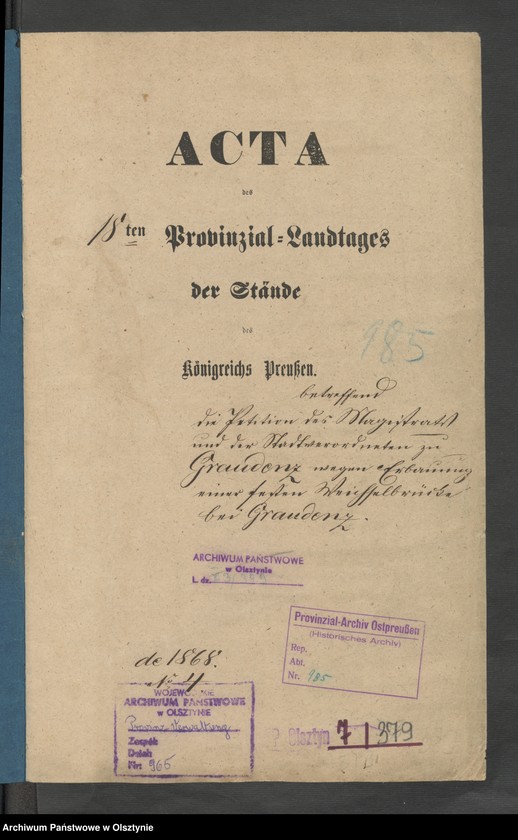 ACTA
des
18ten Provinzial-Landtages
der Stände
des
185
Königreichs Preußen.
betreffend
die Petition des Magistrats
und der Stadtverordneten zu
Graudenz wegen Erbauung
einer festen Weichselbrücke
bei Graudenz.
ARCHIWUM PAŃSTWOWE
w Olsztynie
L. dz.
Provinzial-Archiv Ostpreußen
(Historisches Archiv)
Rep.
Abt.
Nr. 985
de 1868.
No 4
WOJEWÓDZKIE
ARCHIWUM PAŃSTWOWE
w OLSZTYNIE
Zespół
Dział
Nr: 965
Olsztyn 7/379
Archiwum Państwowe w Olsztynie